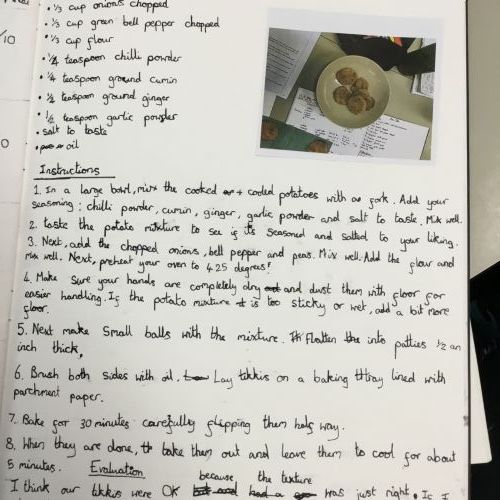 • 1/3 cup onions chopped
• 1/3 cup green bell pepper chopped
• 1/3 cup flour
• 1/4 teaspoon chilli powder
• 1/4 teaspoon ground cumin
• 1/2 teaspoon ground ginger
• 1/2 teaspoon garlic powder
• salt to taste
• oil
Instructions
1. In a large bowl, mix the cooked + cooled potatoes with a fork. Add your
seasoning: chilli powder, cumin, ginger, garlic powder and salt to taste. Mix well.
2. taste the potato mixture to see if its seasoned and salted to your liking.
3. Next, add the chopped onions, bell pepper and peas. Mix well. Add the flour and
mix well. Next, preheat your oven to 425 degrees!
4. Make sure your hands are completely dry and dust them with floor for
easier handling. If the potato mixture is too sticky or wet, add a bit more
floor.
5. Next make small balls with the mixture. Flatten the into patties 1/2 an
inch thick,
6. Brush both sides with oil. Lay tikkis on a baking tray lined with
parchment paper.
7. Bake for 30 minutes carefully flipping them half way.
8. When they are done, take them out and leave them to cool for about
5 minutes. Evaluation
I think our tikkis were OK because the texture was just right. If I